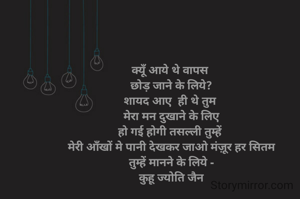 क्यूँ आये थे वापस
छोड़ जाने के लिये?
शायद आए ही थे तुम
मेरा मन दुखाने के लिए
हो गई होगी तसल्ली तुम्हें
मेरी आँखों मे पानी देखकर जाओ मंज़ूर हर सितम
तुम्हें मानने के लिये -
कुहू ज्योति जैन
Storymirror.com